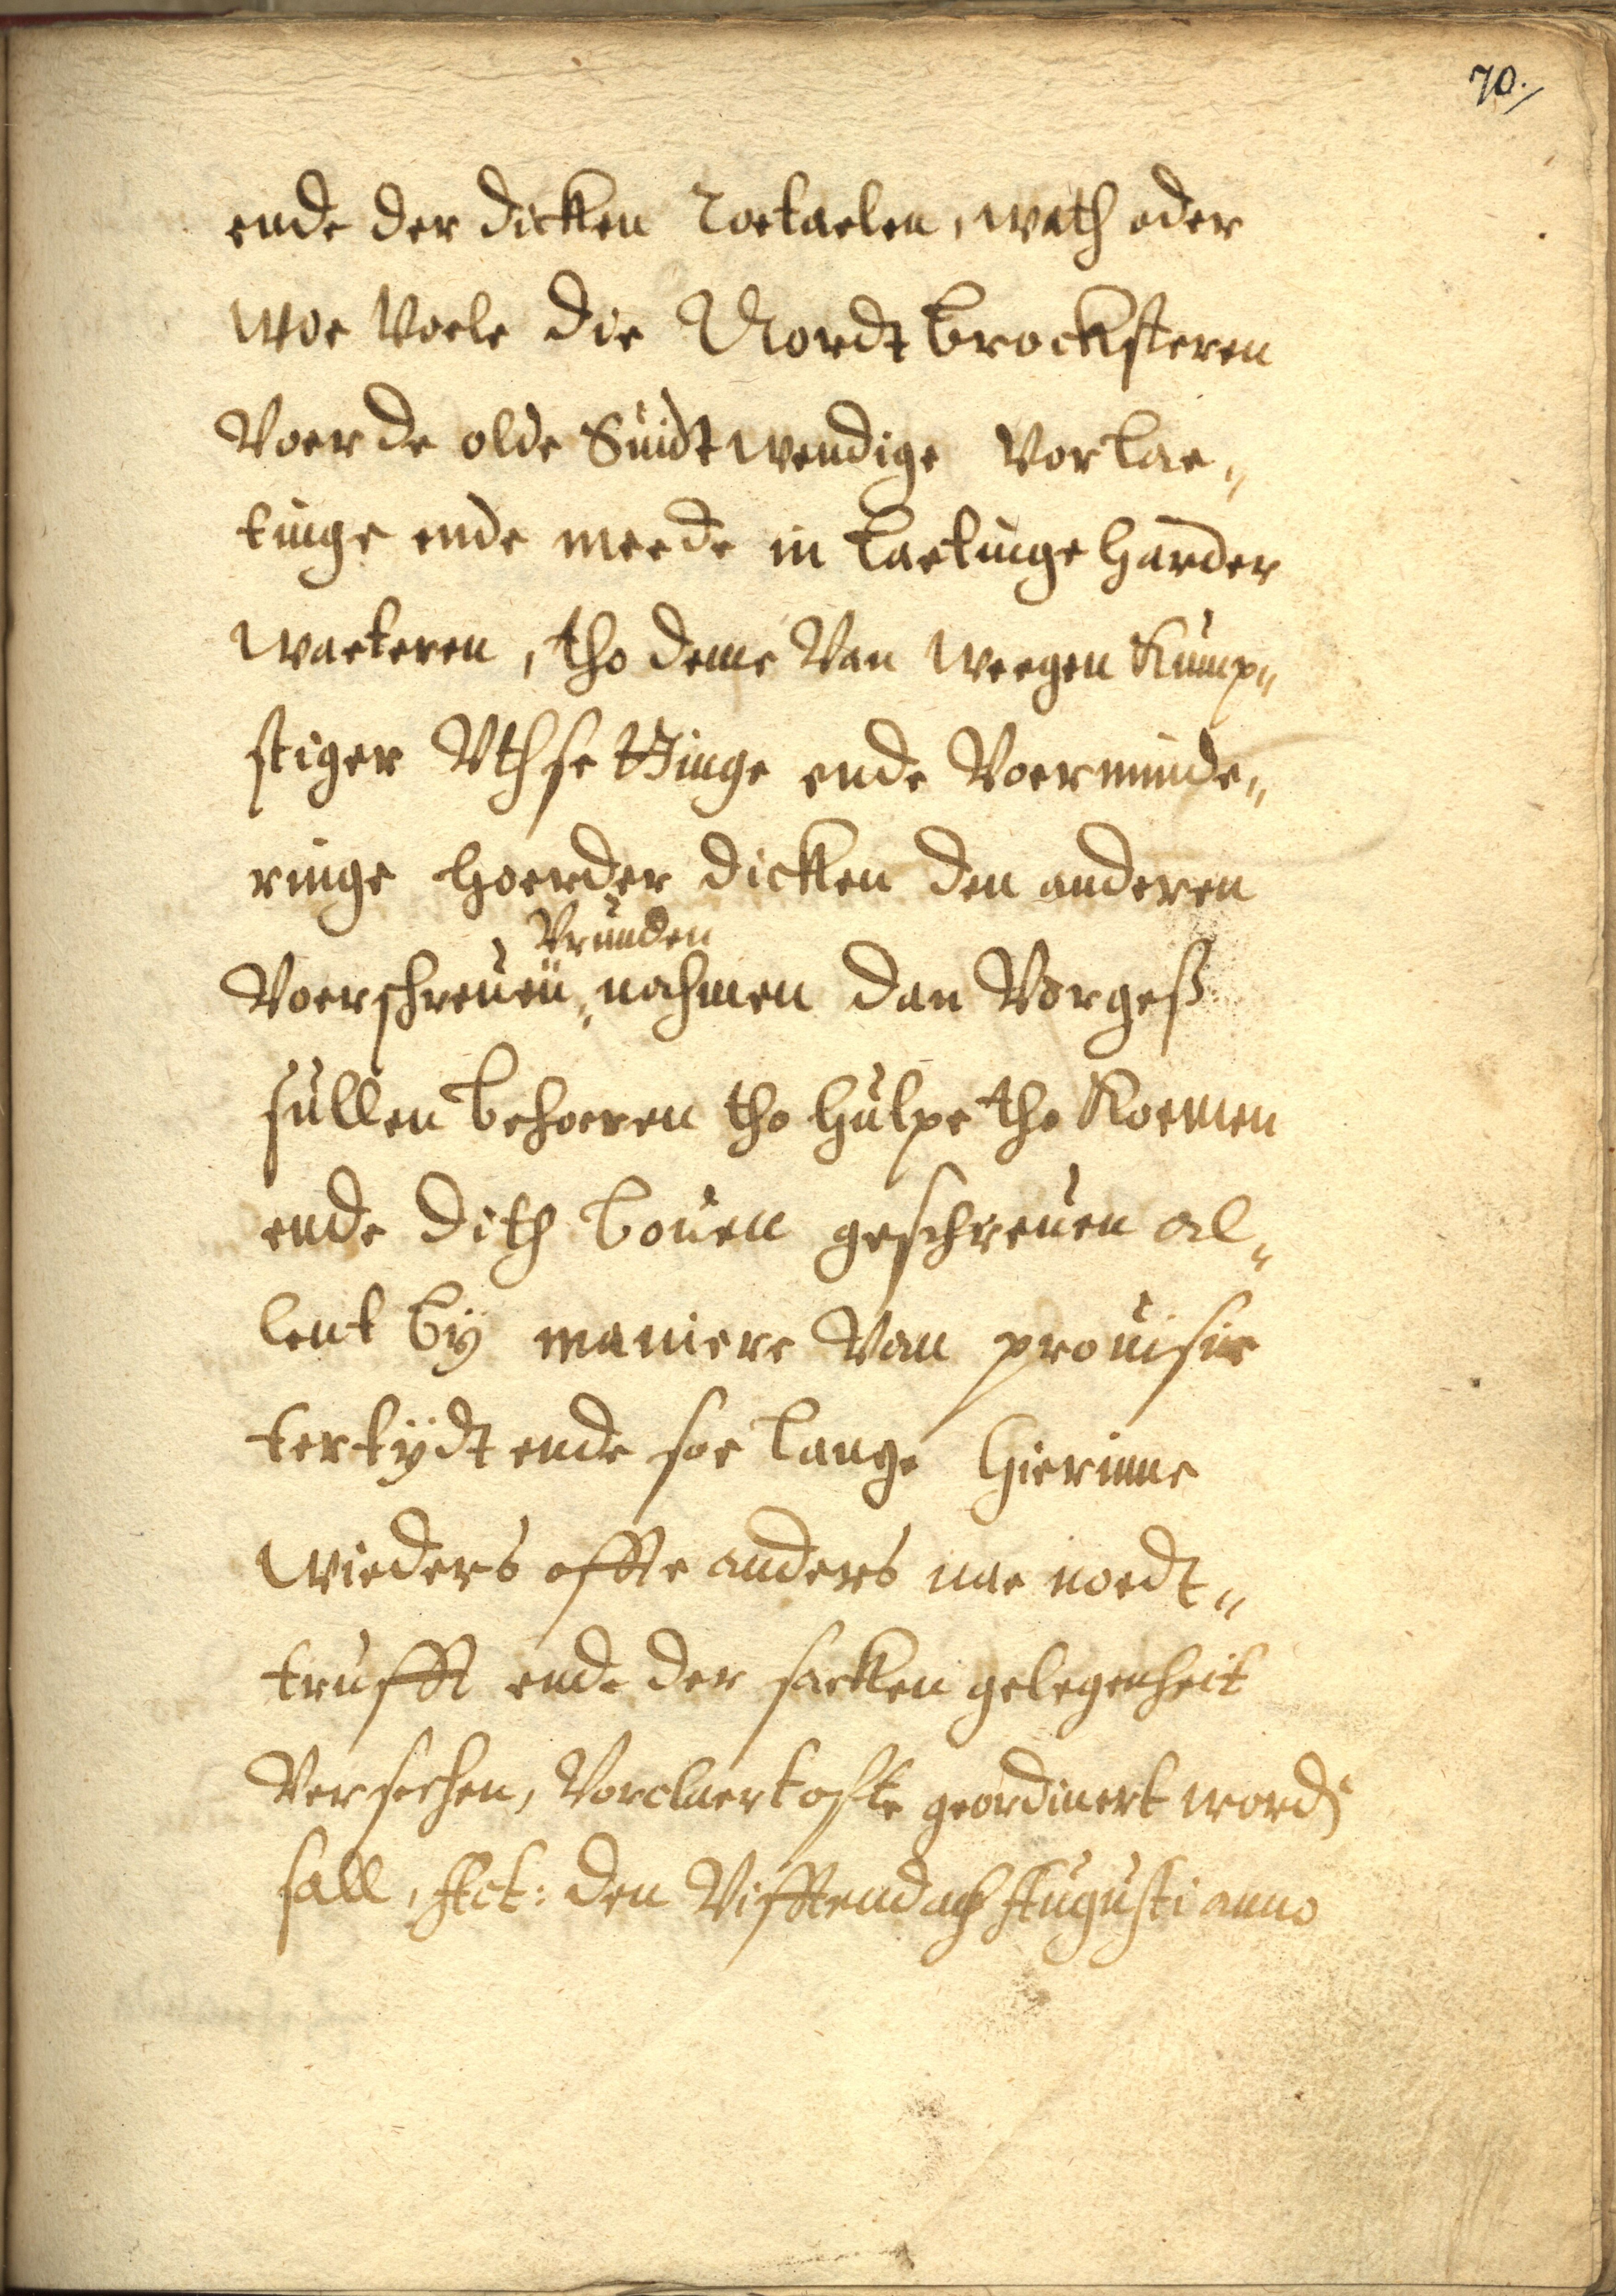 70.
ende der dicken Toetaelen, wath oder
woe voele die Nordtbrocksteren
Voer de olde Suidtwendige vorlae„
tinge ende meede in laetinge harder
waeteren, tho deme van weegen Kump„
stiger Vthsettinge ende Voerminde„
ringe hoerder dicken den anderen
Vrunden
Voerschreuen „ nahmen dan Vorgeß
sullen behoeren tho hulpe tho Koemen
ende dith bouen geschreuen al„
lent by maniere van prouisie
tertydt ende soe lange hierinne
wieders offte anders nae noedt„
trufft ende der saeken gelegenheit
Versehen, Vorclaert ofte geordinert word
sall, Act: den Vifftendach Augusti anno